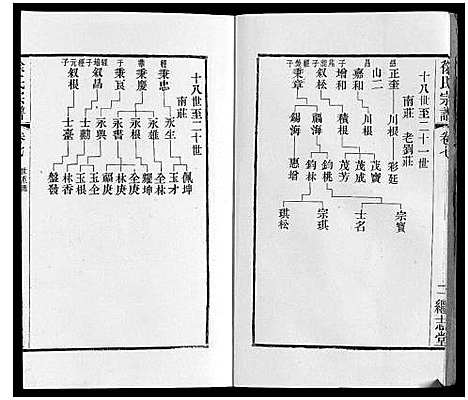 徐氏宗譜 卷七
十八世至二十一世
南莊 老劉莊
正奎 川根 彩廷
山二
嘉和 川根 茂寶 宗寶
茂成
增和 積根 茂芳 士名
叙松 福海 鈞桃
鈞林 宗琪
琪松
秉章 錫海 惠增
二 繼志堂
十八世至二十世
南莊
秉忠 永生 佩坤
玉才
永雄 全林
秉慶 永根 耀坤
福庚
秉良 永書 林庚
永興 玉全
叙昌 士勳 玉根
林香
叙根 士臺 盤發